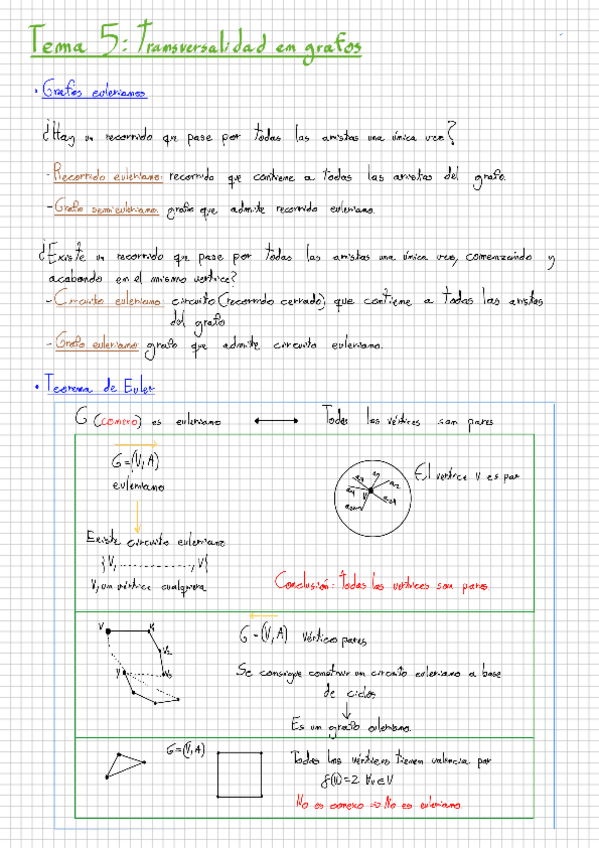 Tema 5: Transversalidad en grafos
• Grafos eulerianos
¿Hay un recorrido que pase por todas las aristas una única vez?
- Recorrido euleriano: recorrido que contiene a todas las aristas del grafo.
- Grafo semieuleriano: grafo que admite recorrido euleriano.
¿Existe un recorrido que pase por todas las aristas una única vez, comenzando y
acabando en el mismo vértice?
- Circuito euleriano: circuito (recorrido cerrado) que contiene a todas las aristas
del grafo
- Grafo euleriano: grafo que admite circuito euleriano.
• Teorema de Euler
G (conexo) es euleriano ⟷ Todos los vértices son pares
G=(V,A)
euleriano
El vértice V es par
Existe circuito euleriano
{V, ............, V}
V, un vértice cualquiera
Conclusión: todos los vértices son pares
V V₁
V₂
V₃
G=(V,A) Vértices pares
Se consigue construir un circuito euleriano a base
de ciclos
Es un grafo euleriano.
G=(V,A)
Todos los vértices tienen valencia par
δ(V)=2 ∀v∈V
No es conexo ⇒ No es euleriano